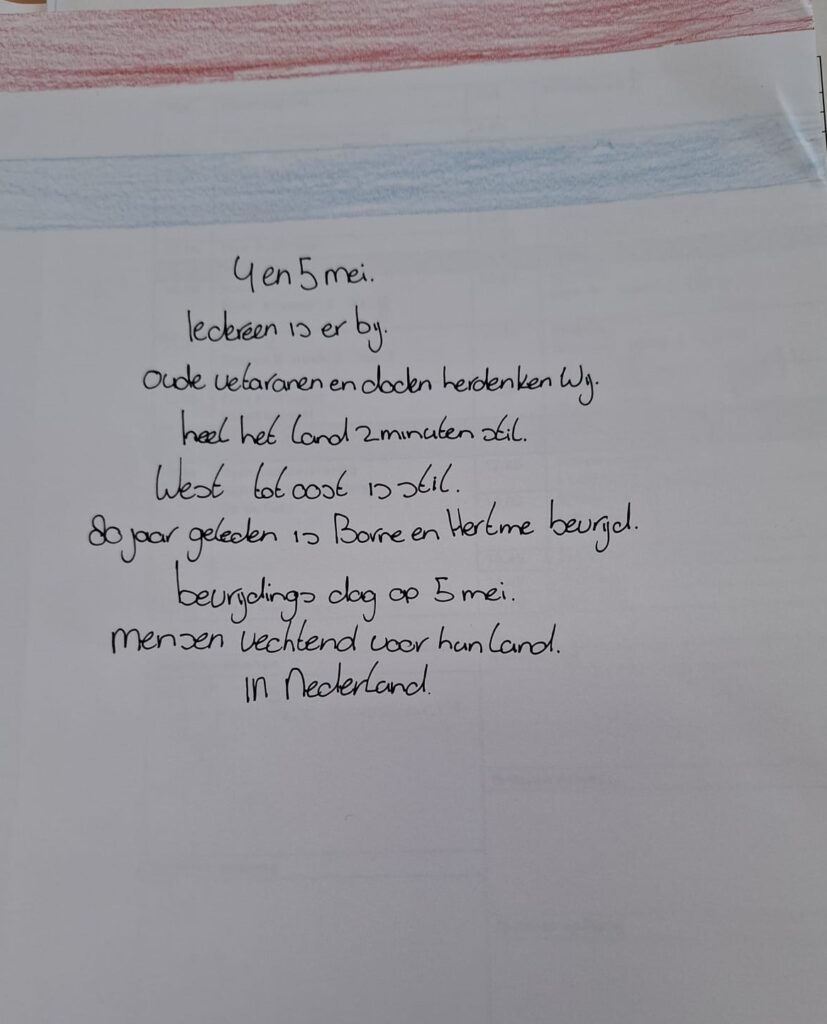 4 en 5 mei.
Iedereen is er bij.
oude vetaranen en doden herdenken wij.
heel het land 2 minuten stil.
West tot oost is stil.
80 jaar geleden is Borne en Hertme bevrijd.
bevrijdings dag op 5 mei.
mensen vechtend voor hun land.
in Nederland.